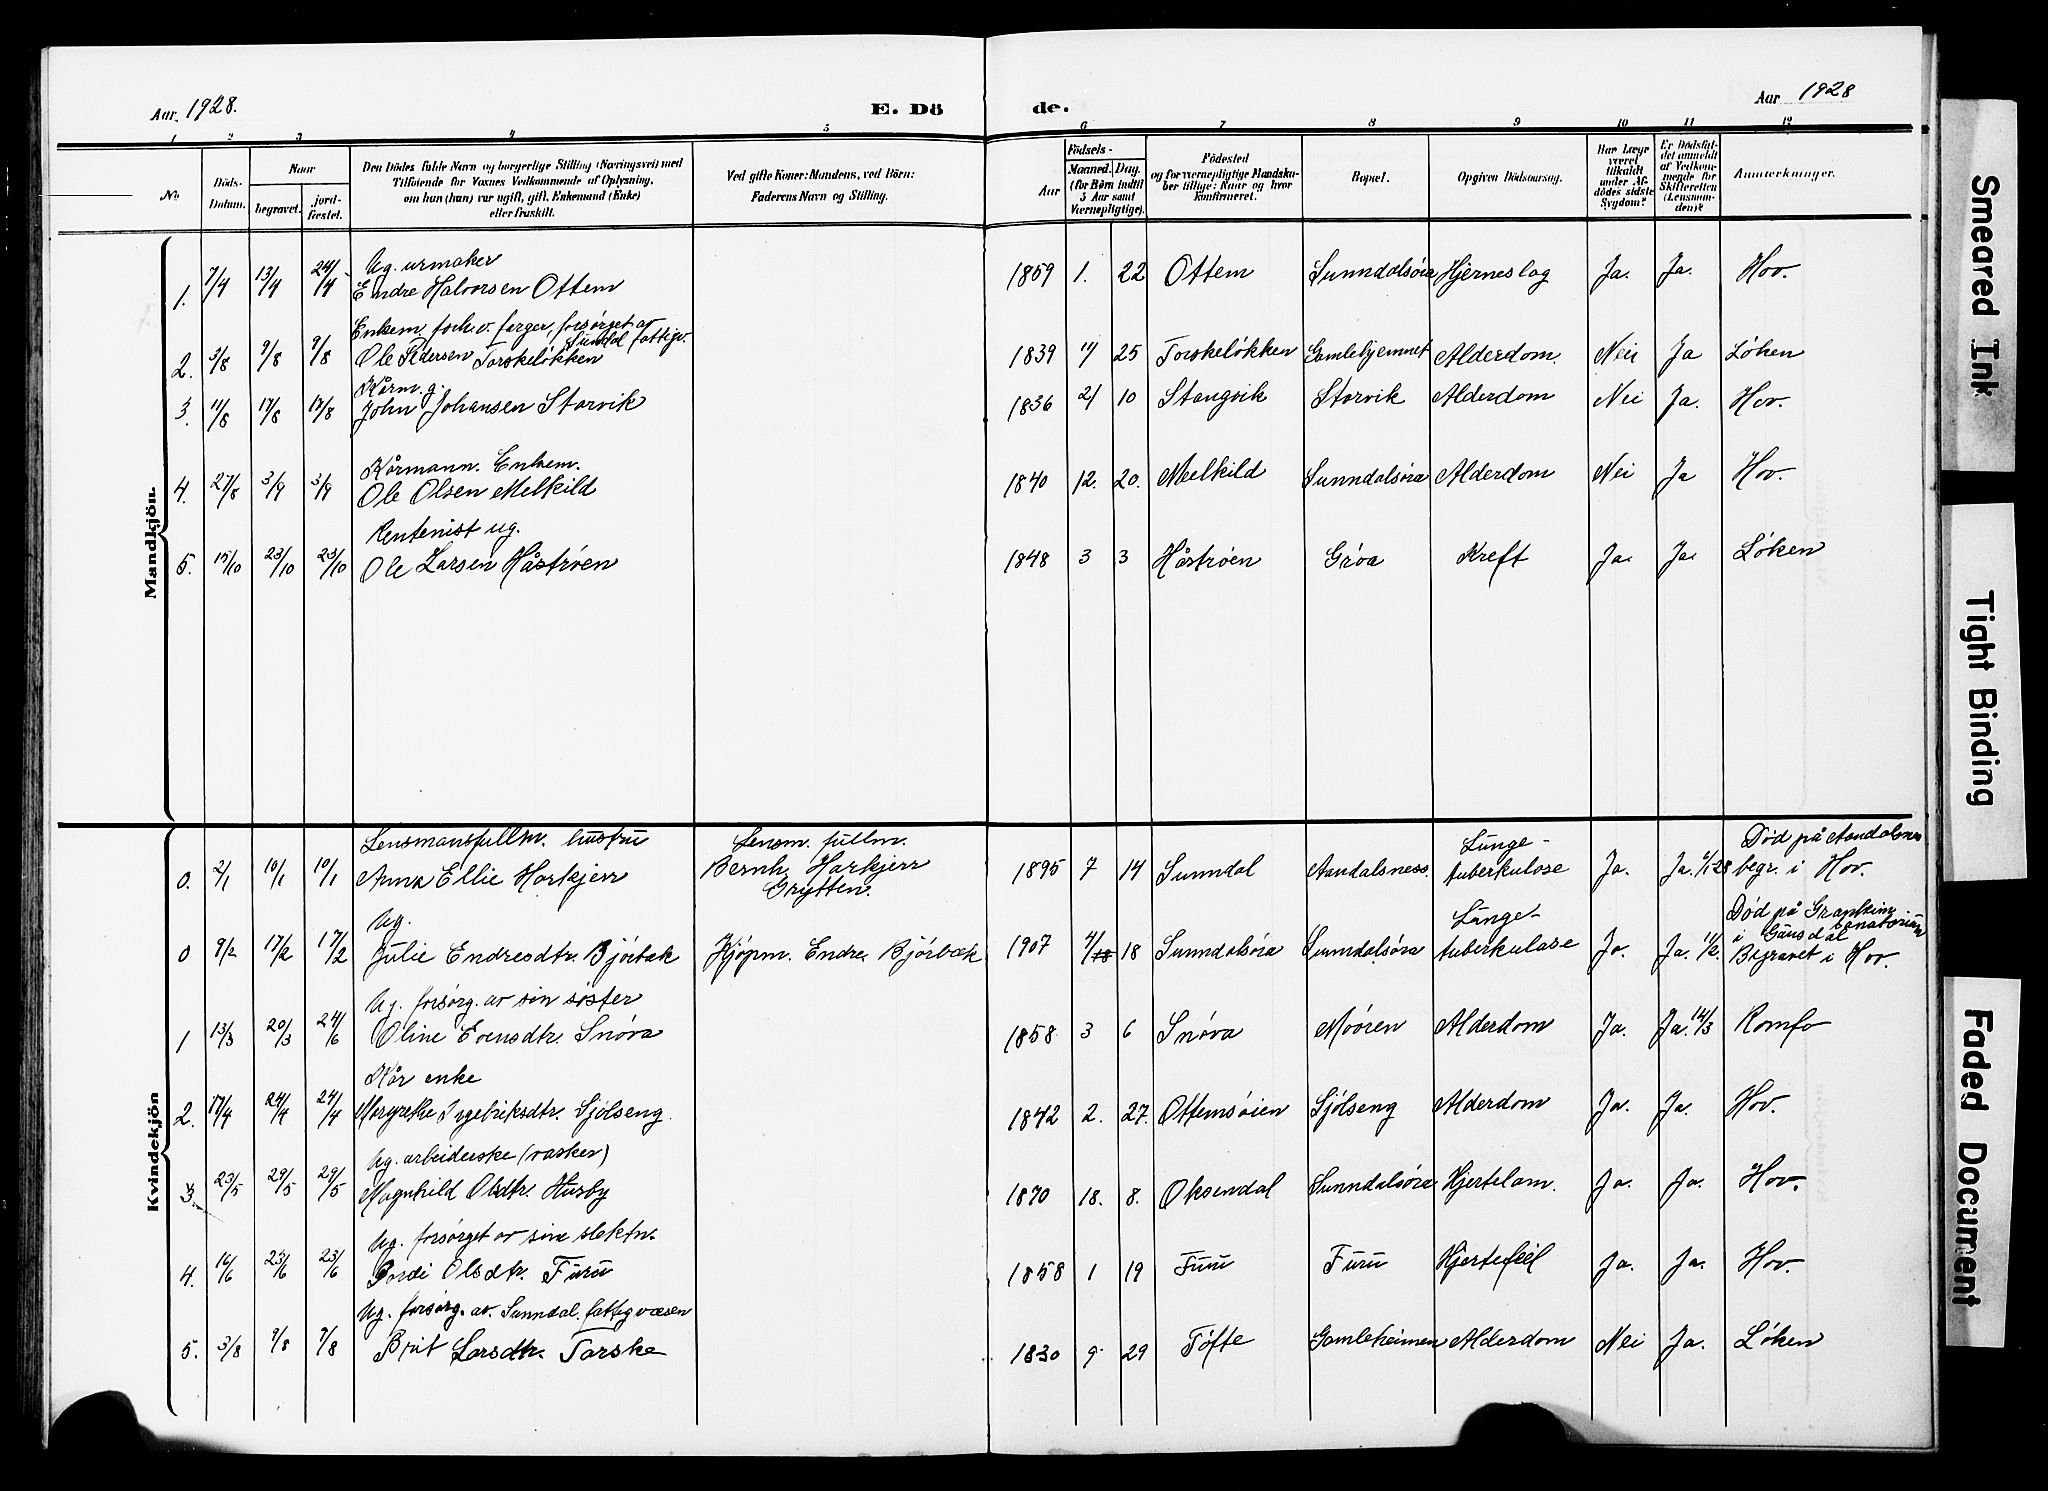 Aar 1928.
E. Dö
de.
Aar 1928
1 2 3 4 5 6 7 8 9 10 11 12
No.
Döds-Datum.
Naar
begravet.
jord-fæstet.
Den Dödes fulde Navn og borgerlige Stilling (Næringsvei) med
Tilföiende for Voxnes Vedkommende af Oplysning,
om han (hun) var ugift, gift, Enkemand (Enke)
eller fraskilt.
Ved gifte Koner: Mandens, ved Börn:
Faderens Navn og Stilling.
Födsels-
Aar
Maaned. Dag.
(for Börn indtil
5 Aar samt
Værnepligtige).
Födested
og for værnepligtige Mandska-
ber tillige: Naar og hvor
konfirmeret.
Bopæl.
Opgiven Dödsaarsag.
Har Læge
været
tilkaldt
under Af-
dödes sidste
Sygdom?
Er Dödsfal-
det anmeldt
af Vedkom-
mende for
Skifteretten
(Lensman-
den)?
Anmærkninger.
Mandkjön.
Ug. urmaker
1. 7/4 13/4 24/4 Endre Halvorsen Ottem 1859 1. 22 Ottem Sunndalsøra Hjerneslag Ja. Ja. Hov.
Enkem. forh.v. farger, forsørget av
Sundal fattigv.
2. 3/8 9/8 9/8 Ole Pedersen Torskeløkken 1839 11/ 25 Torskeløkken Gamlehjemmet Alderdom. Nei Ja Løken
Kårm. g.
3. 11/8 17/8 17/8 John Johansen Storvik 1836 2/ 10 Stangvik Storvik Alderdom Nei Ja. Hov.
Kårmann. Enkem.
4. 27/8 3/9 3/9 Ole Olsen Melkild 1840 12. 20. Melkild Sunndalsøra Alderdom Nei Ja Hov.
Rentenist ug.
5. 15/10 23/10 23/10 Ole Larsen Håstrøen 1848 3 3 Håstrøen Grøa Kreft Ja. Ja. Løken
Kvindekjön
Lensmansfullm. hustru Lensm. fullm. Lunge- Død på Aandalsnes
0. 2/1 10/1 10/1 Anna Ellie Harkjerr Bernh. Harkjerr 1895 7 14 Sunndal Aandalsness. tuberkulose Ja. Ja. 6/1-28 begr. i Hov.
Grytten.
Ug. Lunge- Død på Grankim sanatorium
i Gausdal
0 9/2 17/2 17/2 Julie Endresdtr. Bjørbæk Kjøpm. Endre Bjørbæk 1907 4/ 18 Sunndalsøra Sunndalsøra tuberkulose Ja. Ja. 11/2. Begravet i Hov.
Ug. forsørg. av sin søster
1 13/3 20/3 24/6 Oline Evensdtr. Snøva 1858 3 6 Snøva Moøren Alderdom Ja. Ja. 14/3 Romfo
Kår enke
2. 17/4 24/4 24/4 Margrethe Ingebriksdtr. Sjølseng. 1842 2. 27. Ottemsøien Sjølseng Alderdom Ja. Ja. Hov.
Ug. arbeiderske (vasker)
3. 23/5 29/5 29/5 Magnhild Olsdtr. Husby 1870 18. 8. Øksendal Sunndalsøra Hjertelam. Ja. Ja. Hov.
Ug. forsørget av sine slektn.
4. 16/6 23/6 23/6 Ordi Olsdtr. Furu 1858 1 19 Furu Furu Hjertefeil Ja. Ja. Hov.
Ug. forsørg. av. Sunndal. fattigvæsen
5. 3/8 9/8 9/8 Brit Larsdtr. Torske 1830 9. 29 Tøfte Gamleheimen Alderdom Nei Ja. Løken
Smeared Ink
Tight Binding
Faded Document